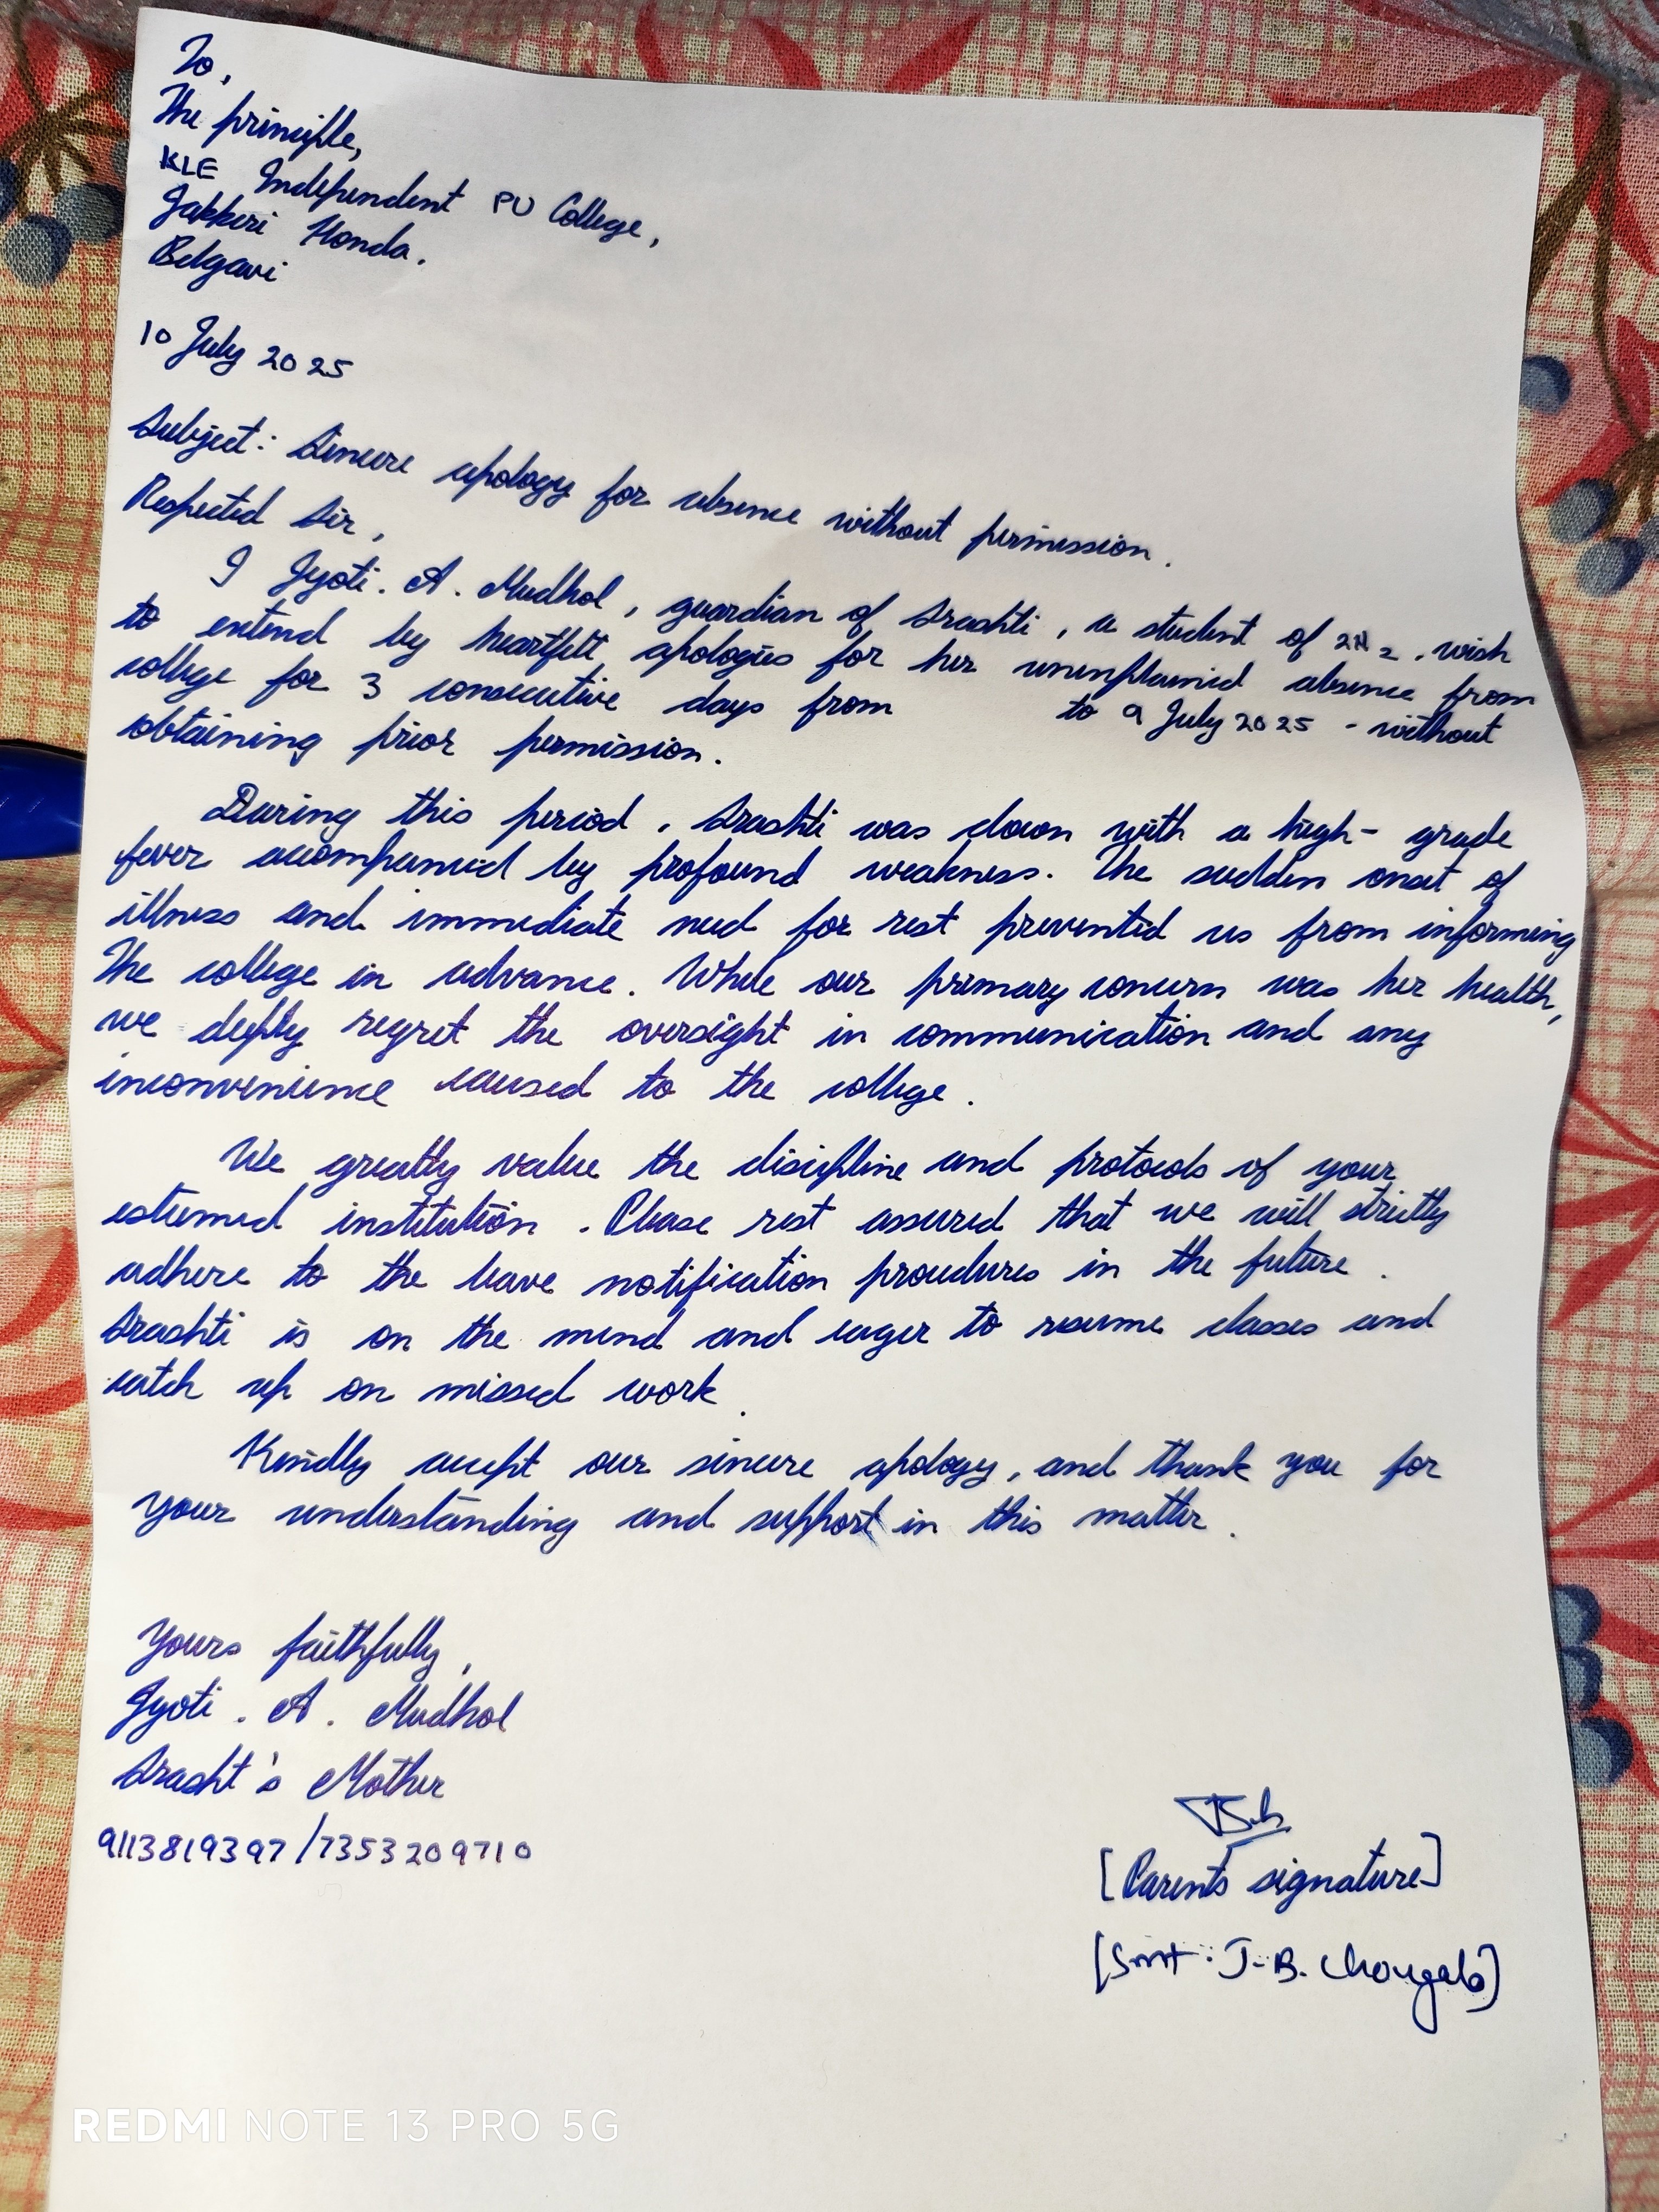 To,
The principle,
KLE Independent PU College,
Jakkeri Honda.
Belgavi
10 July 2025
Subject: Sincere apology for absence without permission.
Respected Sir,
I Jyoti. A. Mudhol, guardian of Srashti, a student of 2N2, wish
to extend by heartfelt apologies for her unexplained absence from
college for 3 consecutive days from to 9 July 2025 - without
obtaining prior permission.
During this period, Srashti was down with a high-grade
fever accompanied by profound weakness. The sudden onset of
illness and immediate need for rest prevented us from informing
the college in advance. While our primary concern was her health,
we deeply regret the oversight in communication and any
inconvenience caused to the college.
We greatly value the discipline and protocols of your
esteemed institution. Please rest assured that we will strictly
adhere to the leave notification procedures in the future.
Srashti is on the mend and eager to resume classes and
catch up on missed work.
Kindly accept our sincere apology, and thank you for
your understanding and support in this matter.
Yours faithfully,
Jyoti. A. Mudhol
Srasht's Mother
9113819397/7353209710
[Parents signature]
[Smt: J. B. Chougale]
REDMI NOTE 13 PRO 5G